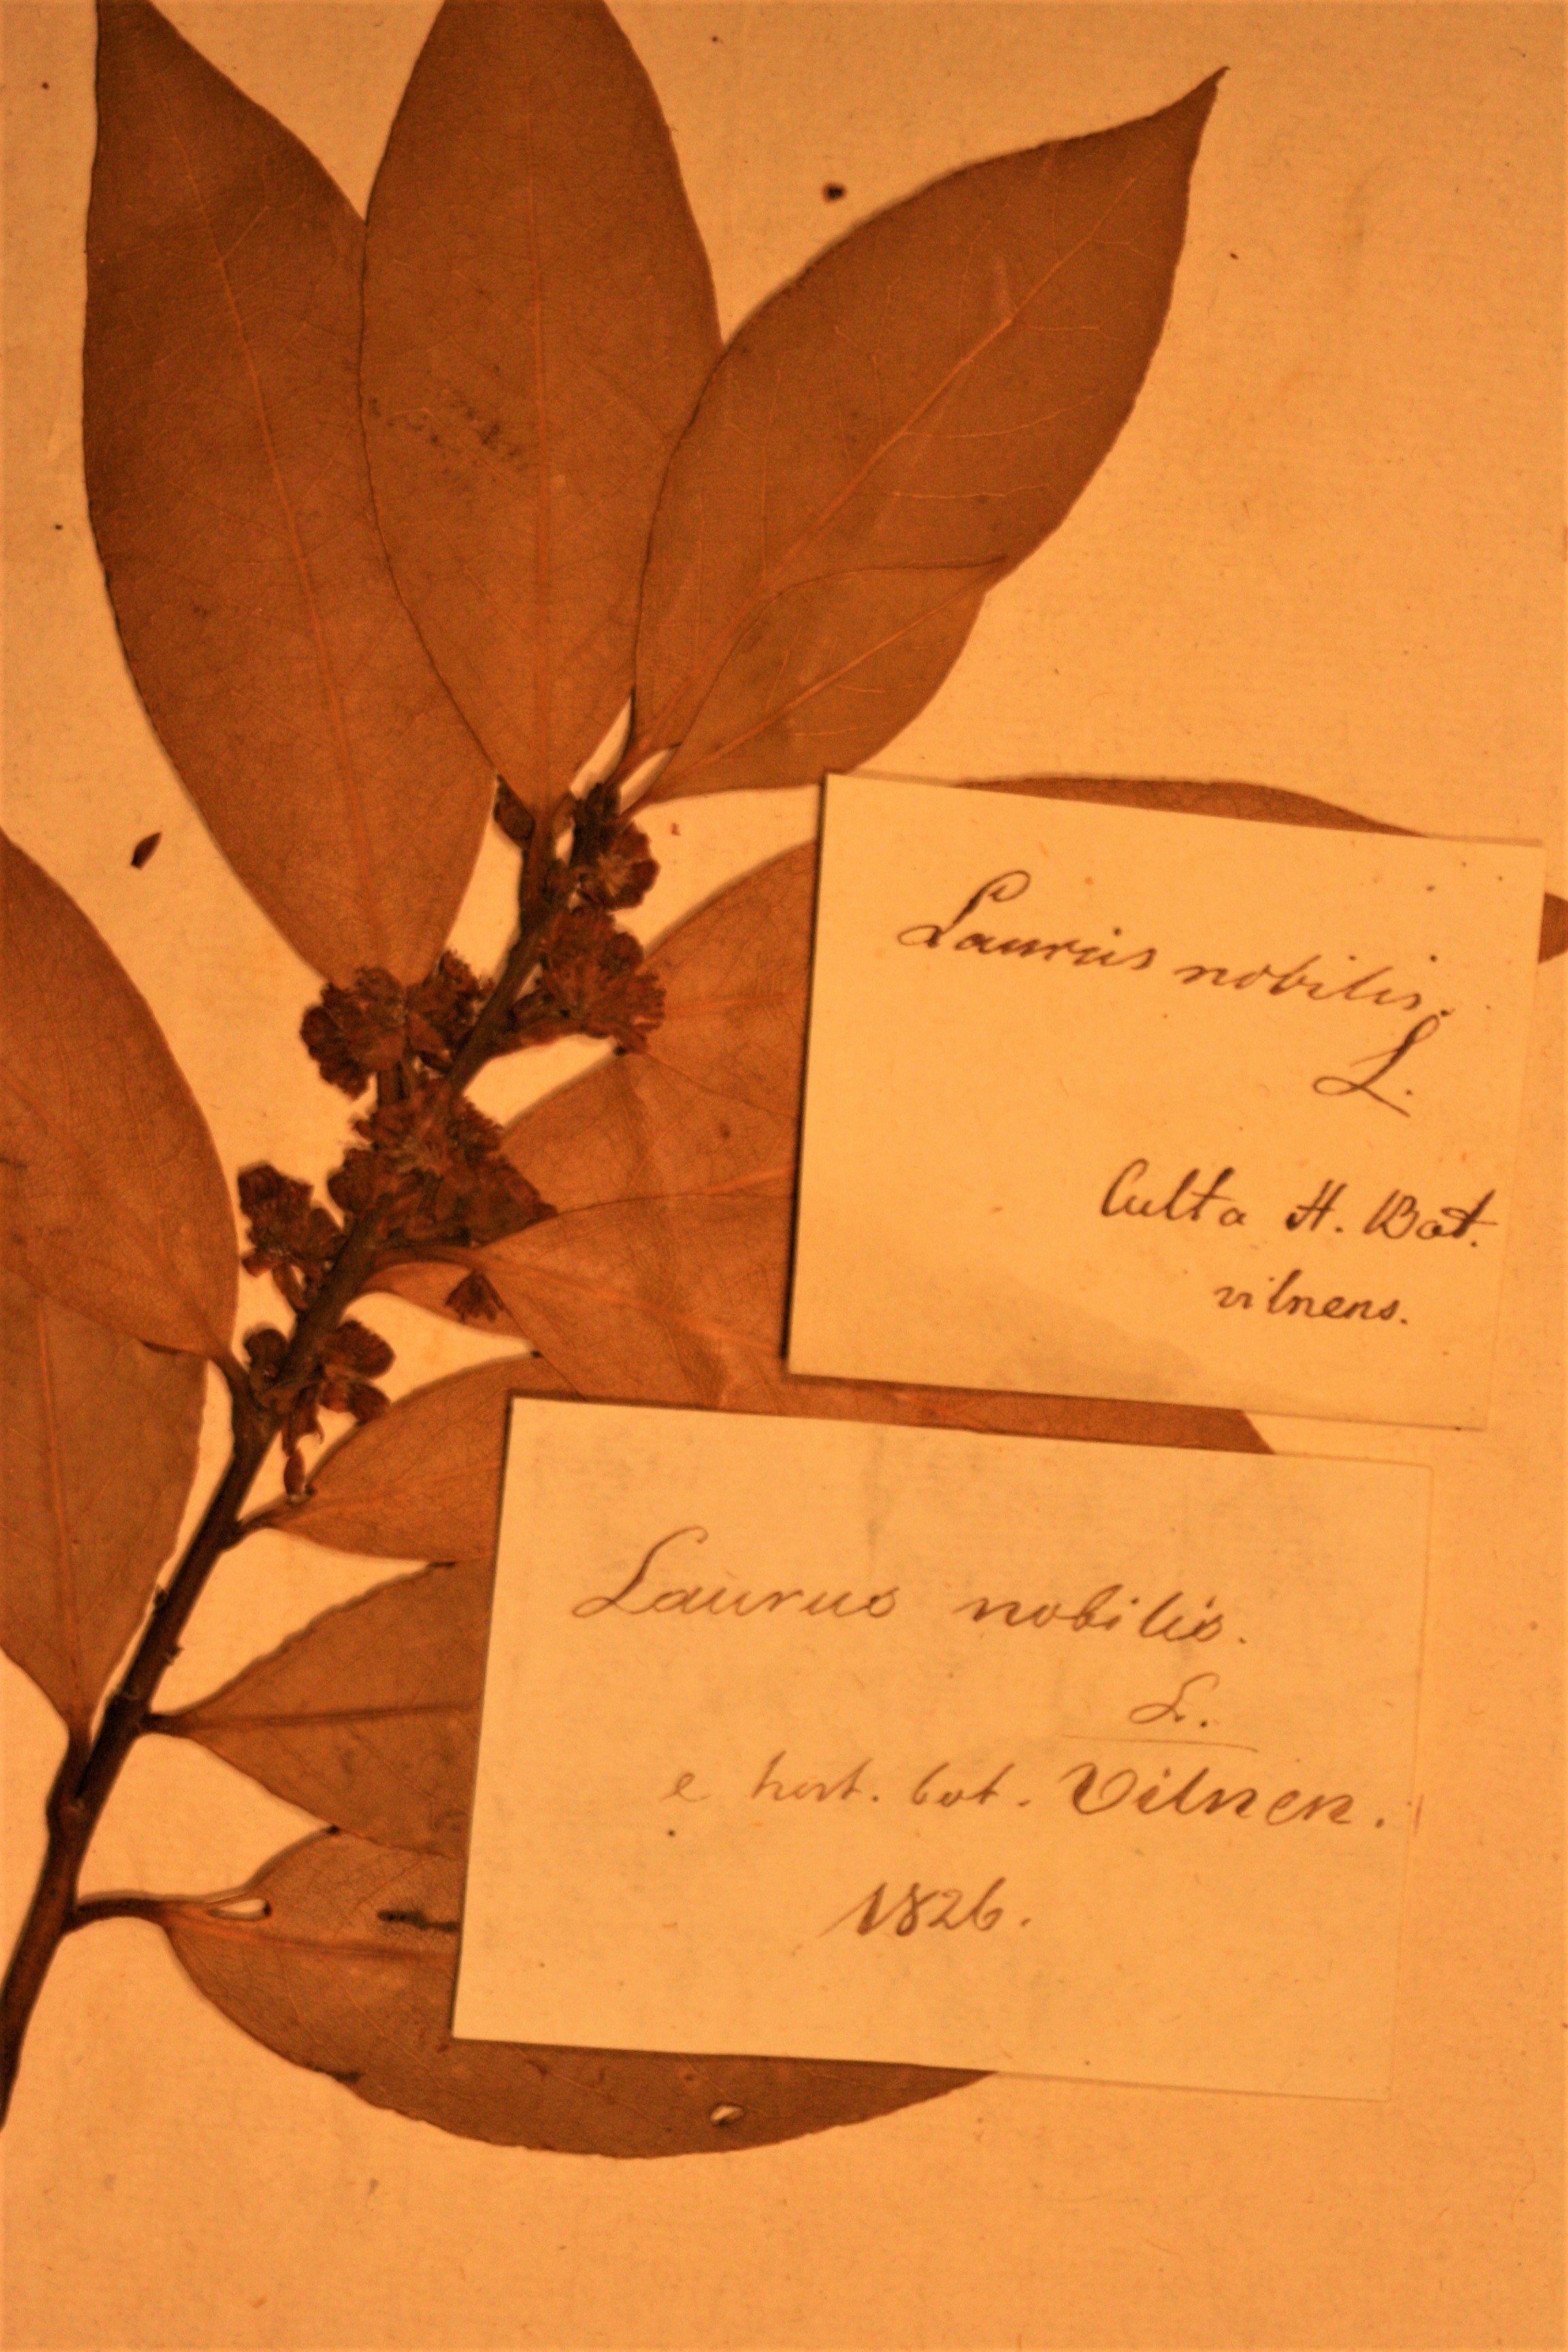 Laurus nobilis.
L.
Culta H. Bot.
vilnens.
Laurus nobilis.
L.
e hort. bot. Vilnen.
1826.